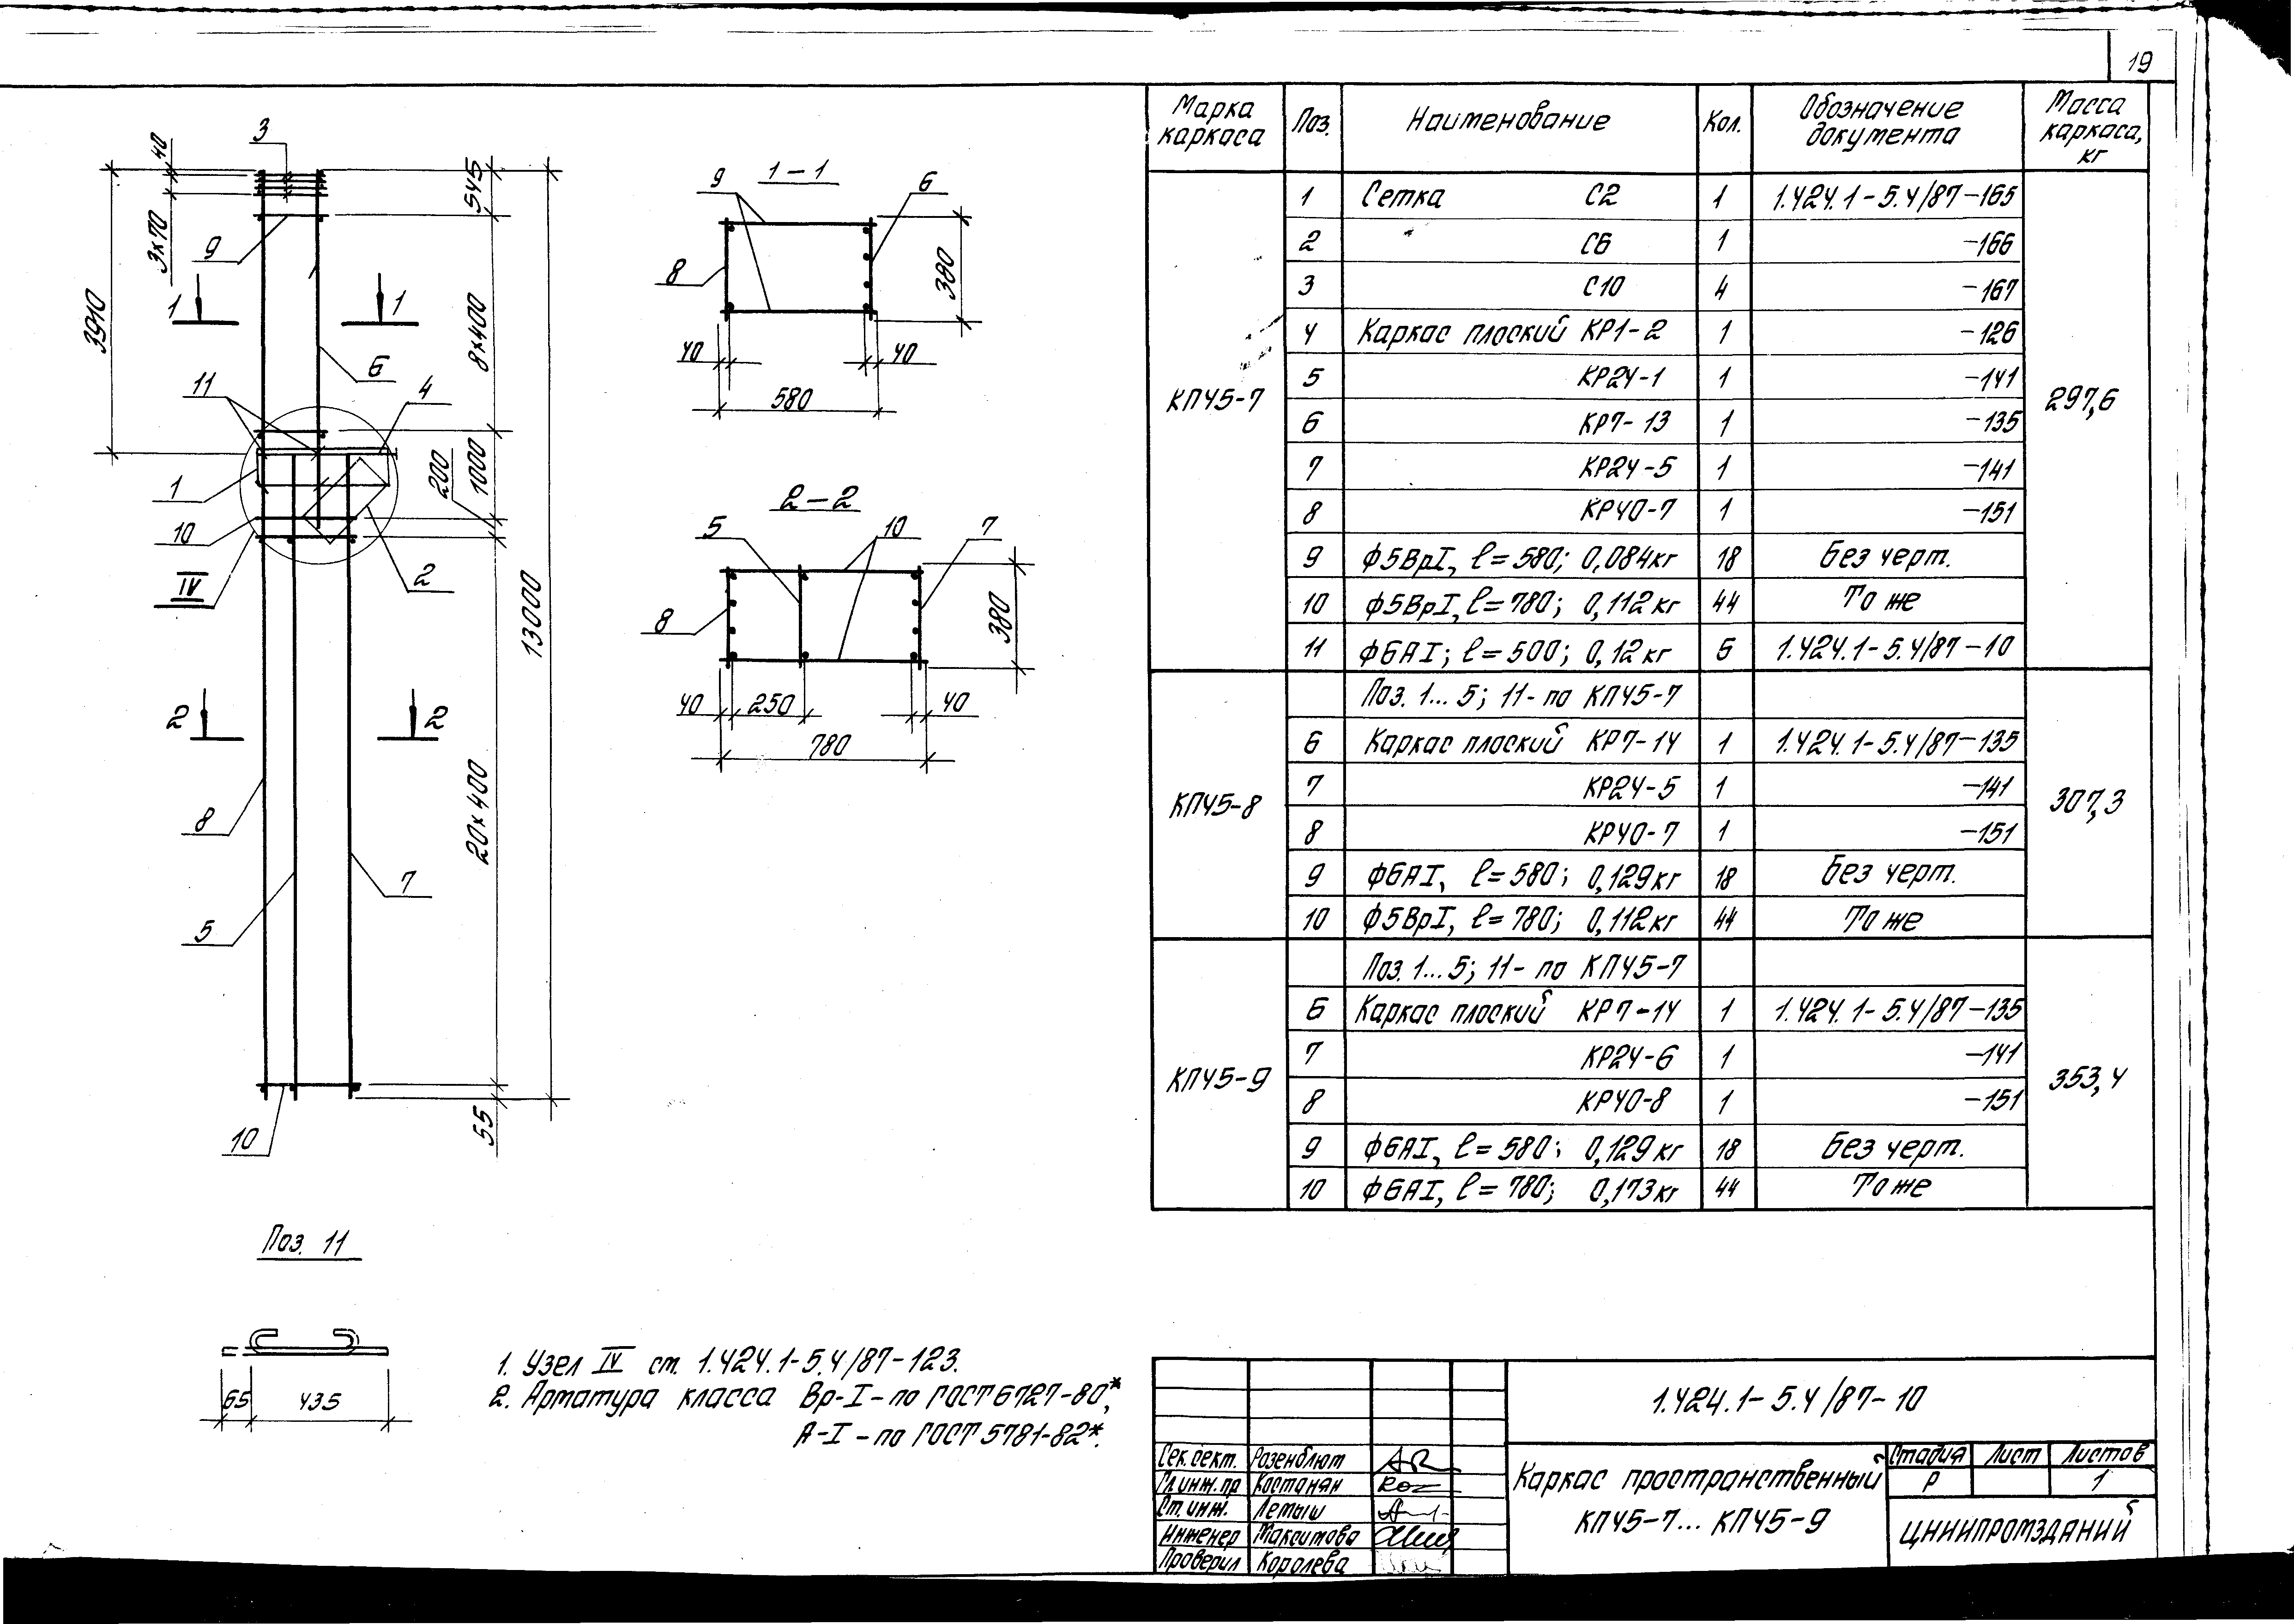 19
Марка каркаса | Поз. | Наименование | Кол. | Обозначение документа | Масса каркаса, кг
КП45-7 | 1 | Сетка С2 | 1 | 1.424.1-5.4/87-165 | 297,6
2 | С6 | 1 | -166
3 | С10 | 4 | -167
4 | Каркас плоский КР1-2 | 1 | -126
5 | КР24-1 | 1 | -141
6 | КР7-13 | 1 | -135
7 | КР24-5 | 1 | -141
8 | КР40-7 | 1 | -151
9 | ф5ВрI, ℓ=580; 0,084кг | 18 | Без черт.
10 | ф5ВрI, ℓ=780; 0,112кг | 44 | То же
11 | ф6АI; ℓ=500; 0,12кг | 6 | 1.424.1-5.4/87-10
КП45-8 | Поз. 1...5; 11- по КП45-7 | 307,3
6 | Каркас плоский КР7-14 | 1 | 1.424.1-5.4/87-135
7 | КР24-5 | 1 | -141
8 | КР40-7 | 1 | -151
9 | ф6АI, ℓ=580; 0,129кг | 18 | Без черт.
10 | ф5ВрI, ℓ=780; 0,112кг | 44 | То же
КП45-9 | Поз. 1...5; 11- по КП45-7 | 353,4
6 | Каркас плоский КР7-14 | 1 | 1.424.1-5.4/87-135
7 | КР24-6 | 1 | -141
8 | КР40-8 | 1 | -151
9 | ф6АI, ℓ=580; 0,129кг | 18 | Без черт.
10 | ф6АI, ℓ=780; 0,173кг | 44 | То же
3
40
545
3×70
9
1
1
3910
8×400
6
11
4
1
200
1000
10
IV
2
13000
2
2
20×400
8
7
5
55
10
1-1
9
6
8
380
40
40
580
2-2
5
10
7
8
380
40
250
40
780
Поз. 11
65
435
1. Узел IV см. 1.424.1-5.4/87-123.
2. Арматура класса Вр-I-по ГОСТ 6727-80*,
А-I-по ГОСТ 5781-82*.
1.424.1-5.4/87-10
Сек.сект. Розенблюм
Гл.инж.пр Костанян
Ст.инж. Летыш
Инженер Максимова
Проверил Королева
Каркас пространственный
КП45-7...КП45-9
Стадия | Лист | Листов
Р | 1
ЦНИИПРОМЗДАНИЙ